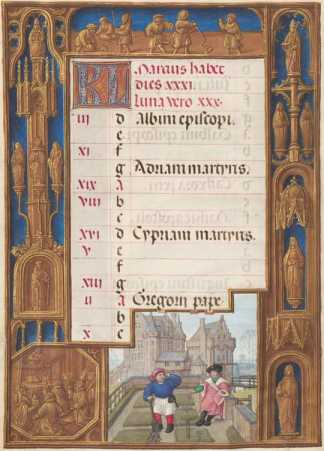 KL Marcius habet
dies xxxi.
Luna vero xxx.
iii d Albini episcopi.
e
xi f
g Adriani martyris.
xix A
viii b
c
xvi d Cypriani martyris.
v e
f
xiii g
ii A Gregorii pape.
b
x c